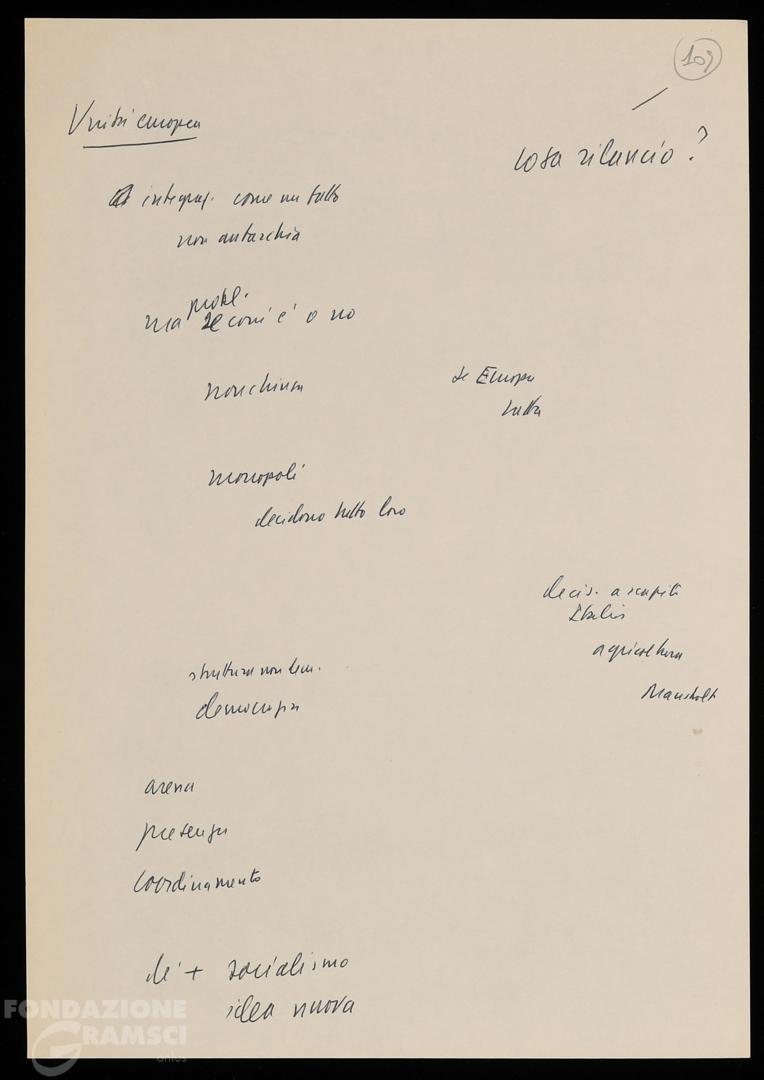 109
Unità europea
cosa rilancio?
integraz. come un tutto
non autarchia
probl.
ma se così è o no
non chiusa
se Europa
tutta
monopoli
decidono tutto loro
decis. a scapito
Italia
agricoltura
Mansholt
struttura non dem.
democrazia
arena
presenza
coordinamento
di + socialismo
idea nuova
FONDAZIONE
GRAMSCI
onlus